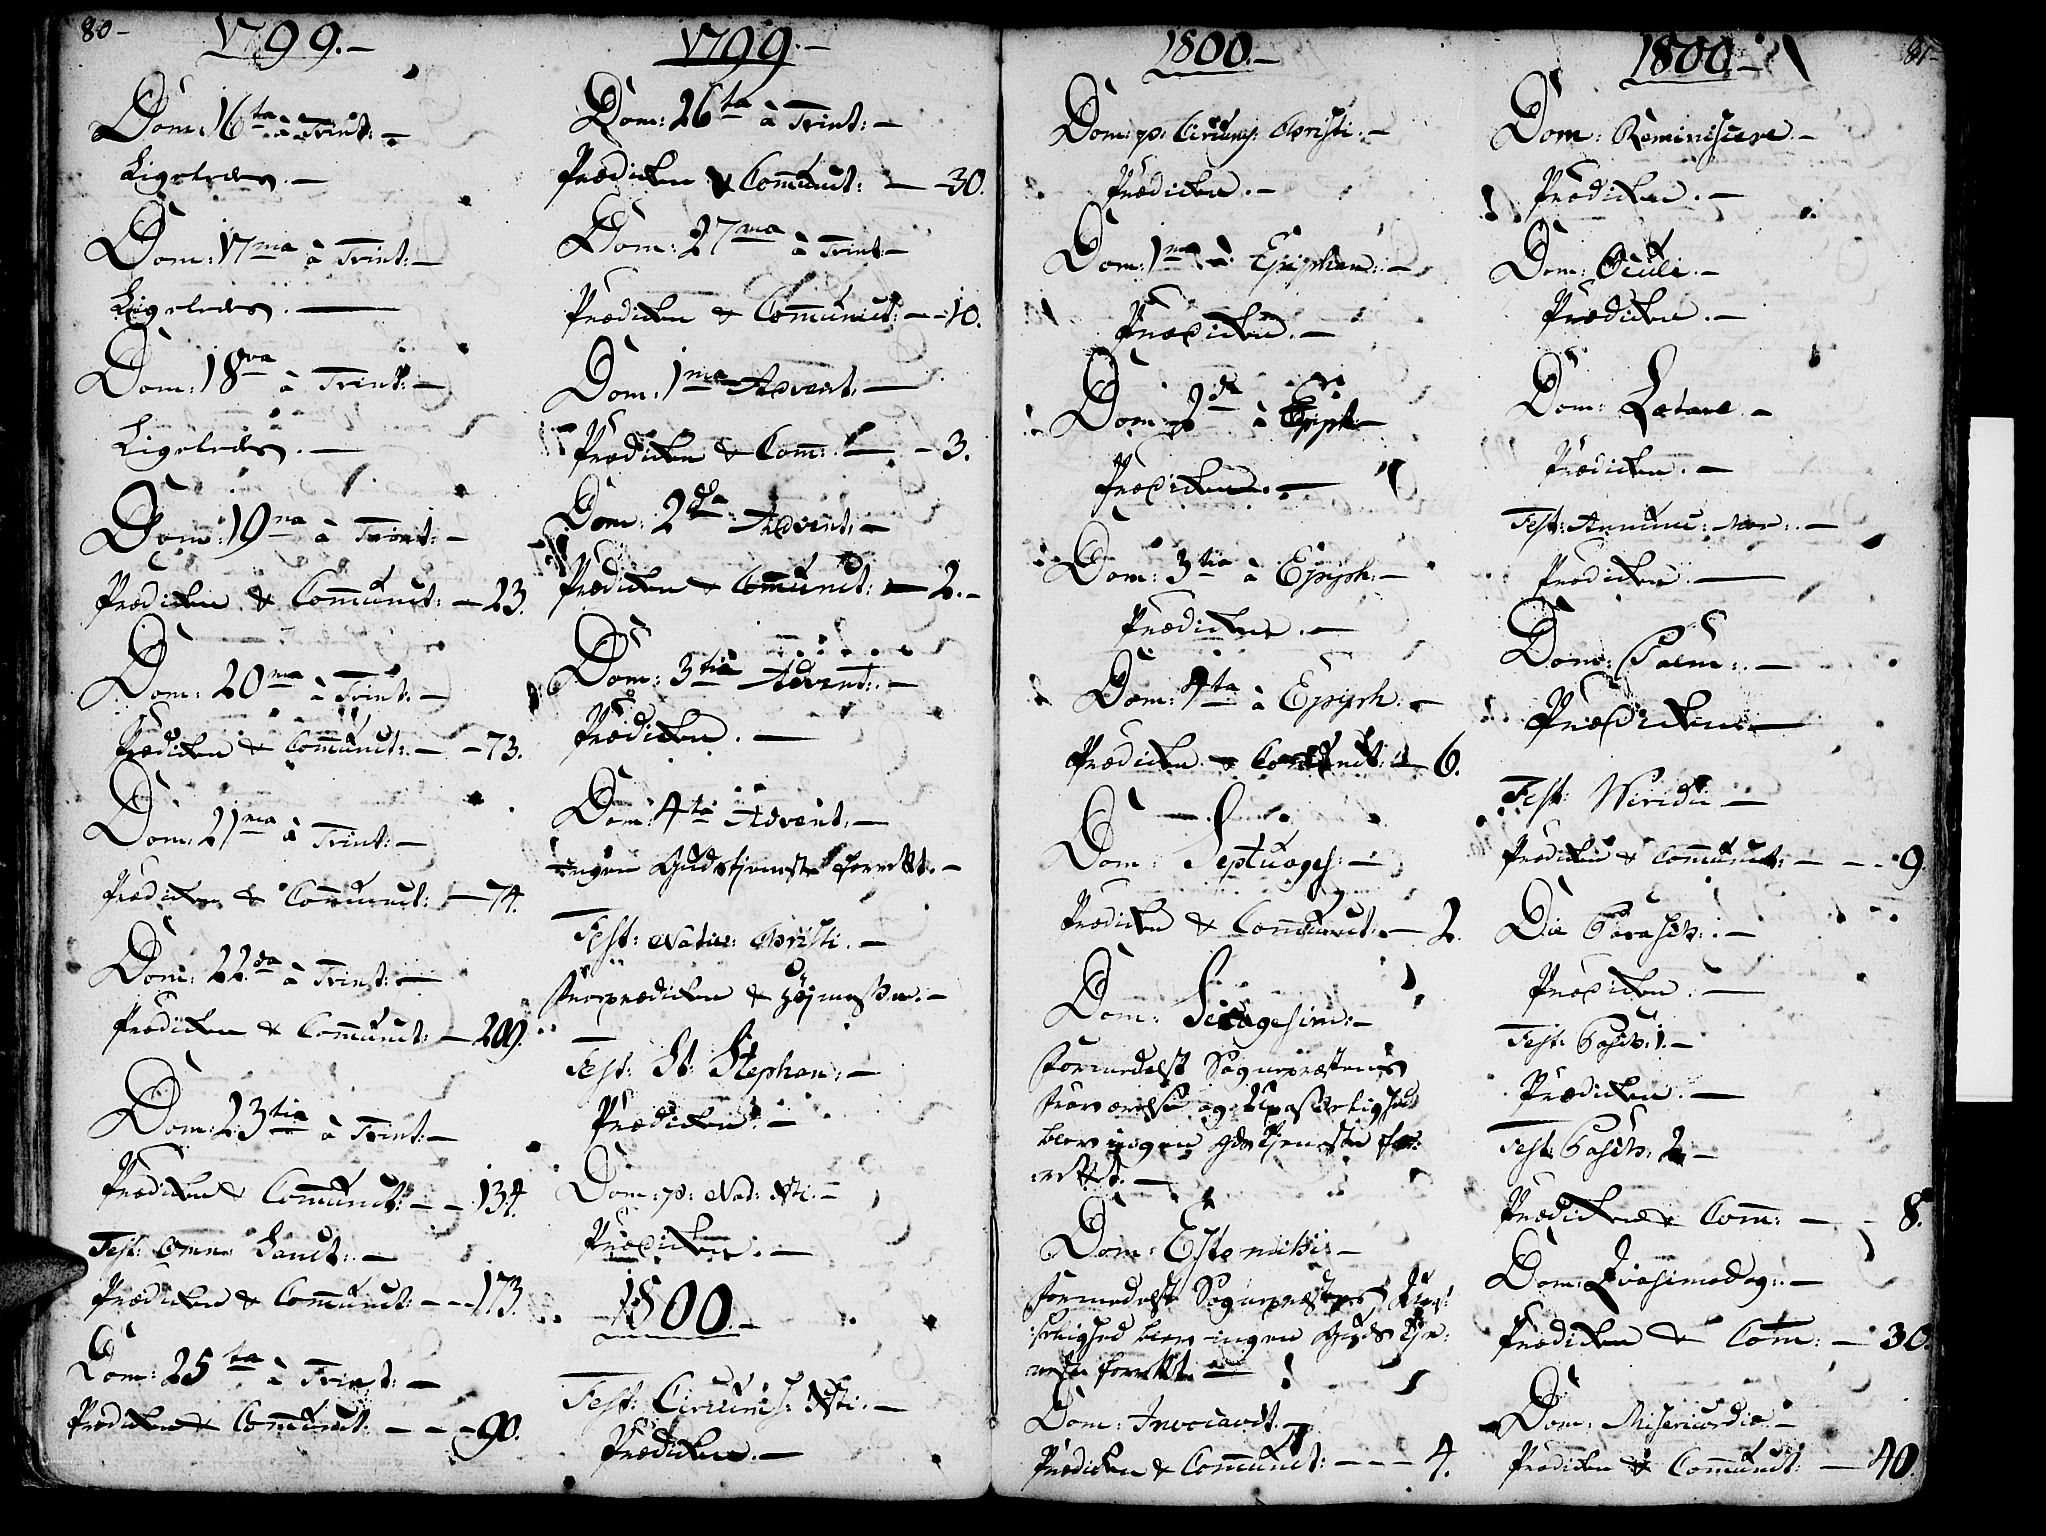 80-
1799.-
Dom: 16ta à Trint: -
Ligeledes. -
Dom: 17ma à Trint: -
Ligeledes. -
Dom: 18va à Trint: -
Ligeledes. -
Dom: 19na à Trint: -
Prædiken & Communict: - 23.
Dom: 20ma à Trint: -
Prædiken & Communict: - - 73.
Dom: 21ma à Trint: -
Prædiken & Communict: - 74.
Dom: 22da à Trint: -
Prædiken & Communict: - 209.
Dom: 23tia à Trint: -
Prædiken & Communict: - - 134.
Fest: Omn: Sanct: -
Prædiken & Communict: - - - 173.
Dom: 25ta à Trint: -
Prædiken & Communict: - - - 90.
1799.-
Dom: 26ta à Trint: -
Prædiken & Communict: - - 30.
Dom: 27ma à Trint -
Prædiken & Communict: - - 10.
Dom: 1ma Advent: -
Prædiken & Com: - - 3.
Dom: 2da Advent: -
Prædiken & Communict: - 2. -
Dom: 3tia Advent: -
Prædiken. -
Dom: 4ta Advent: -
ingen Gudstjeneste forrett. -
Fest: Nativ: Christi. -
Froeprædiken & Højmesse. -
Fest: St: Stephan: -
Prædiken. -
Dom: p: Nat: Xti. -
Prædiken. -
1800.-
Fest: Circums: Xti. -
Prædiken. -
1800.-
Dom: p: Circums: Christi. -
Prædiken. -
Dom: 1ma à Epiphan: -
Prædiken. -
Dom: 2da à Epiph -
Prædiken. -
Dom: 3tia à Epiph: -
Prædiken. -
Dom: 4ta à Epiph: -
Prædiken & Communict: - 6.
Dom: Septuages: -
Prædiken & Communict: - 2.
Dom: Sexagesim: -
Formedelst Sognepræstens
Fraværelse og Upasselighed
blev ingen Gds Tjeneste for:
rettet. -
Dom: Estomihi -
Formedelst Sognepræstens Upas:
selighed blev ingen Guds Tje:
neste forrett -
Dom: Invocavit. -
Prædiken & Communict: - - - 4.
1800.-
81-
Dom: Reminiscere. -
Prædiken. -
Dom: Oculi. -
Prædiken. -
Dom: Lætare. -
Prædiken. -
Fest: Annunc: Mar: -
Prædiken. -
Dom: Palm: -
Prædiken. -
Fest: Viridic -
Prædiken & Communict: - - - 9.
Die Parasch: -
Prædiken. -
Fest: Pasch: 1. -
Prædiken. -
Fest: Pasch: 2. -
Prædiken & Comm: - - 8.
Dom: Qvasimodog: -
Prædiken & Com: - 30.
Dom: Misericordia. -
Prædiken & Communict: - 40.